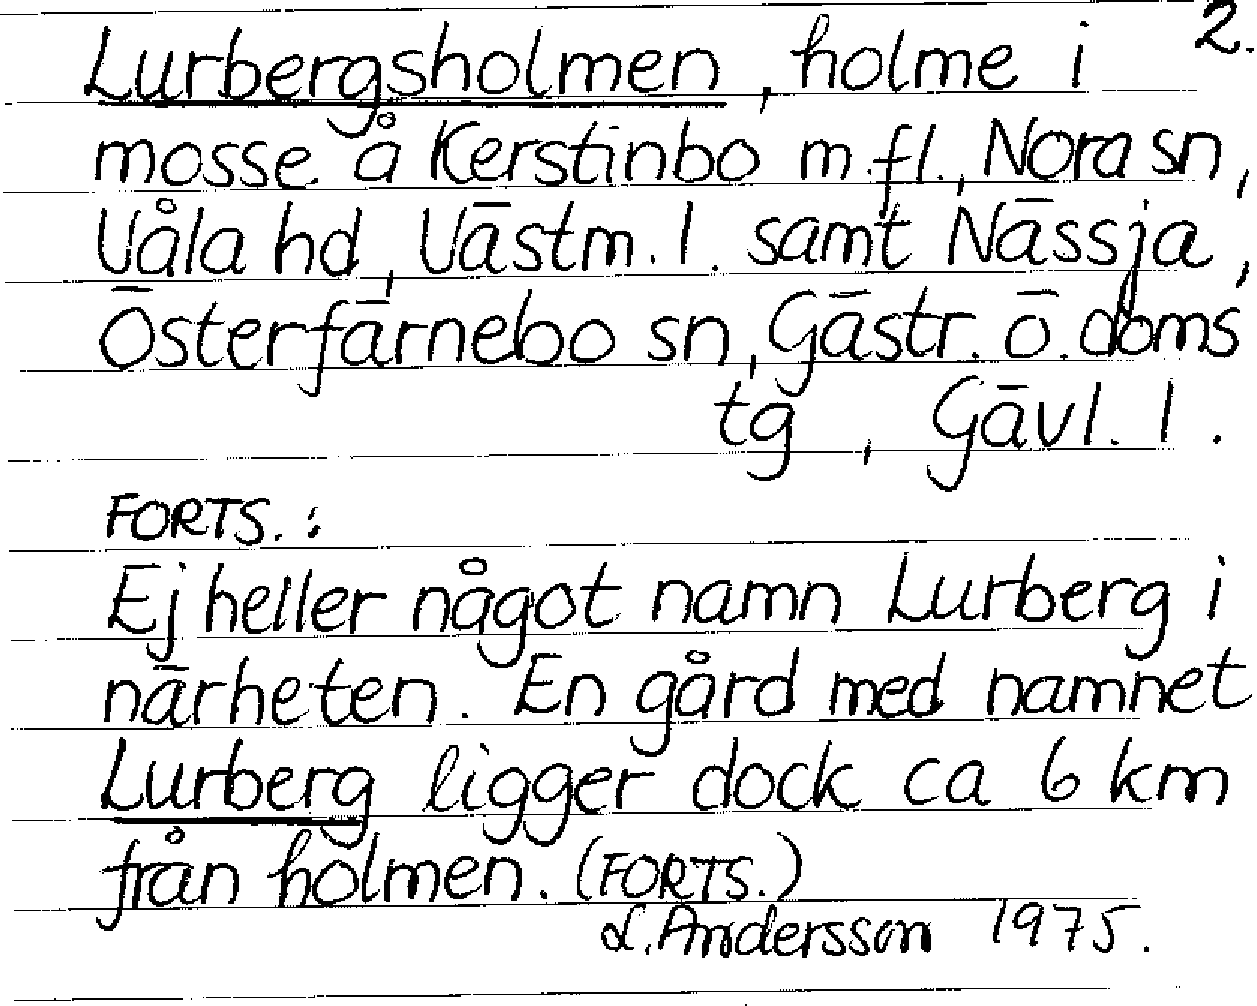 2.
Lurbergsholmen, holme i
mosse å Kerstinbo m.fl., Nora sn,
Våla hd, Västm. l. samt Nässja,
Österfärnebo sn, Gästr. ö. doms
tg, Gävl. l.
FORTS.:
Ej heller något namn Lurberg i
närheten. En gård med namnet
Lurberg ligger dock ca 6 km
från holmen. (FORTS.)
L. Andersson 1975.